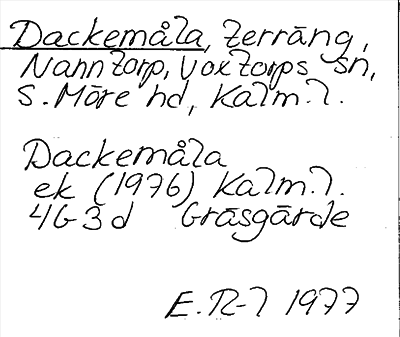 Dackemåla, terräng,
Nanntorp, Voxtorps sn,
S. Möre hd, Kalm. l.
Dackemåla
ek (1976) Kalm. l.
4G3d Gräsgårde
E. R-l 1977